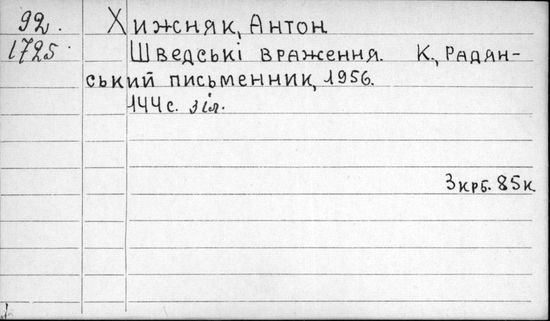 92.
1725
Хижняк, Антон
Шведські враження. К., Радян-
ський письменник, 1956.
144с. з іл.
3 крб. 85к.